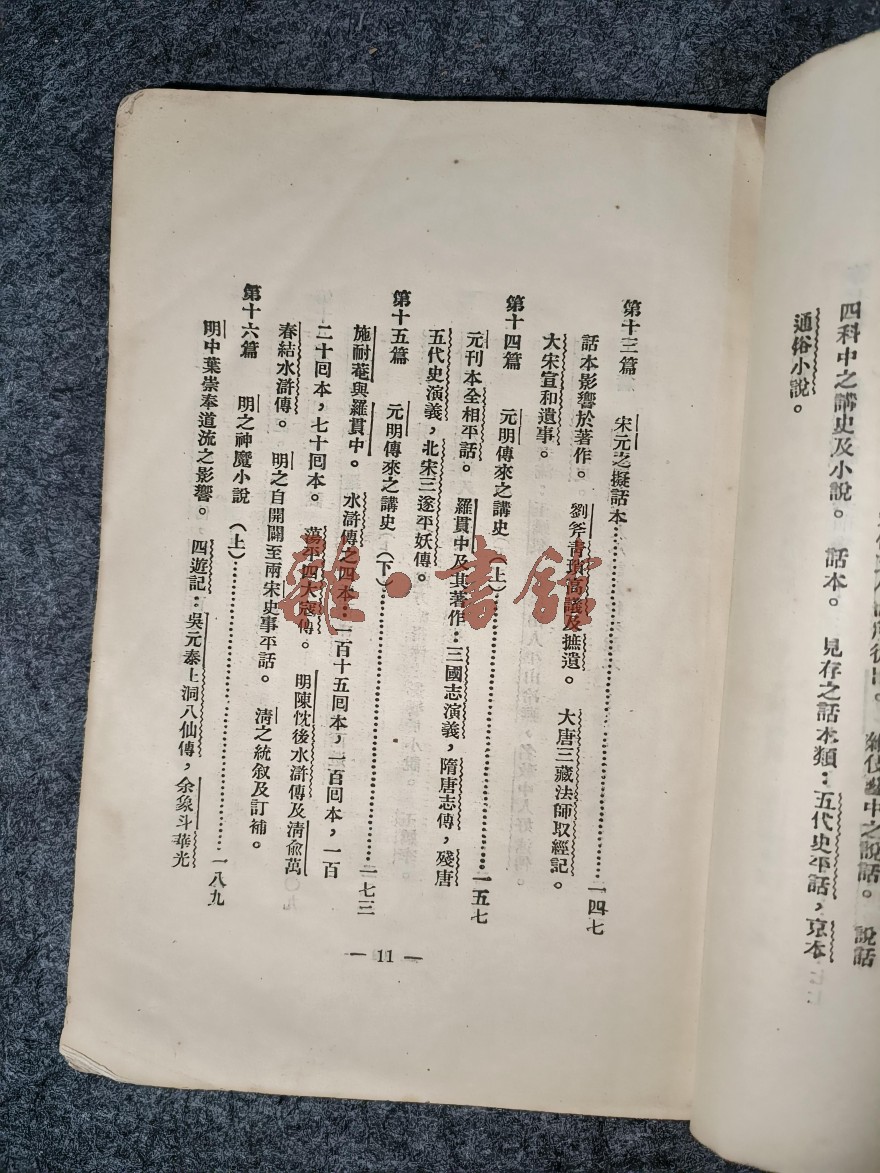 四科中之講史及小說。 話本。 見存之話本類：五代史平話，京本
通俗小說。
第十三篇 宋元之擬話本……一四七
話本影響於著作。 劉斧青瑣高議及摭遺。 大唐三藏法師取經記。
大宋宣和遺事。
第十四篇 元明傳來之講史（上）……一五七
元刊本全相平話。 羅貫中及其著作：三國志演義，隋唐志傳，殘唐
五代史演義，北宋三遂平妖傳。
第十五篇 元明傳來之講史（下）……一七三
施耐菴與羅貫中。 水滸傳之四本：一百十五回本，一百回本，一百
二十回本，七十回本。 蕩平四大寇傳。 明陳忱後水滸傳及清俞萬
春結水滸傳。 明之自開闢至兩宋史事平話。 清之統敘及訂補。
第十六篇 明之神魔小說（上）……一八九
明中葉崇奉道流之影響。 四遊記：吳元泰上洞八仙傳，余象斗華光
— 11 —
雜·書館